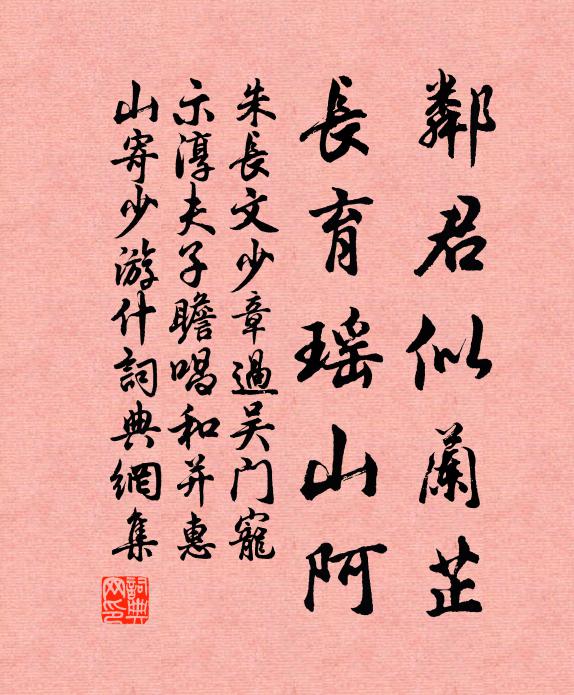 鄰君似蘭芷
長育瑶山阿
朱長文少章過吴门寵
示淳夫子瞻唱和并惠
山寄少游什詞典網集
詞典
网印